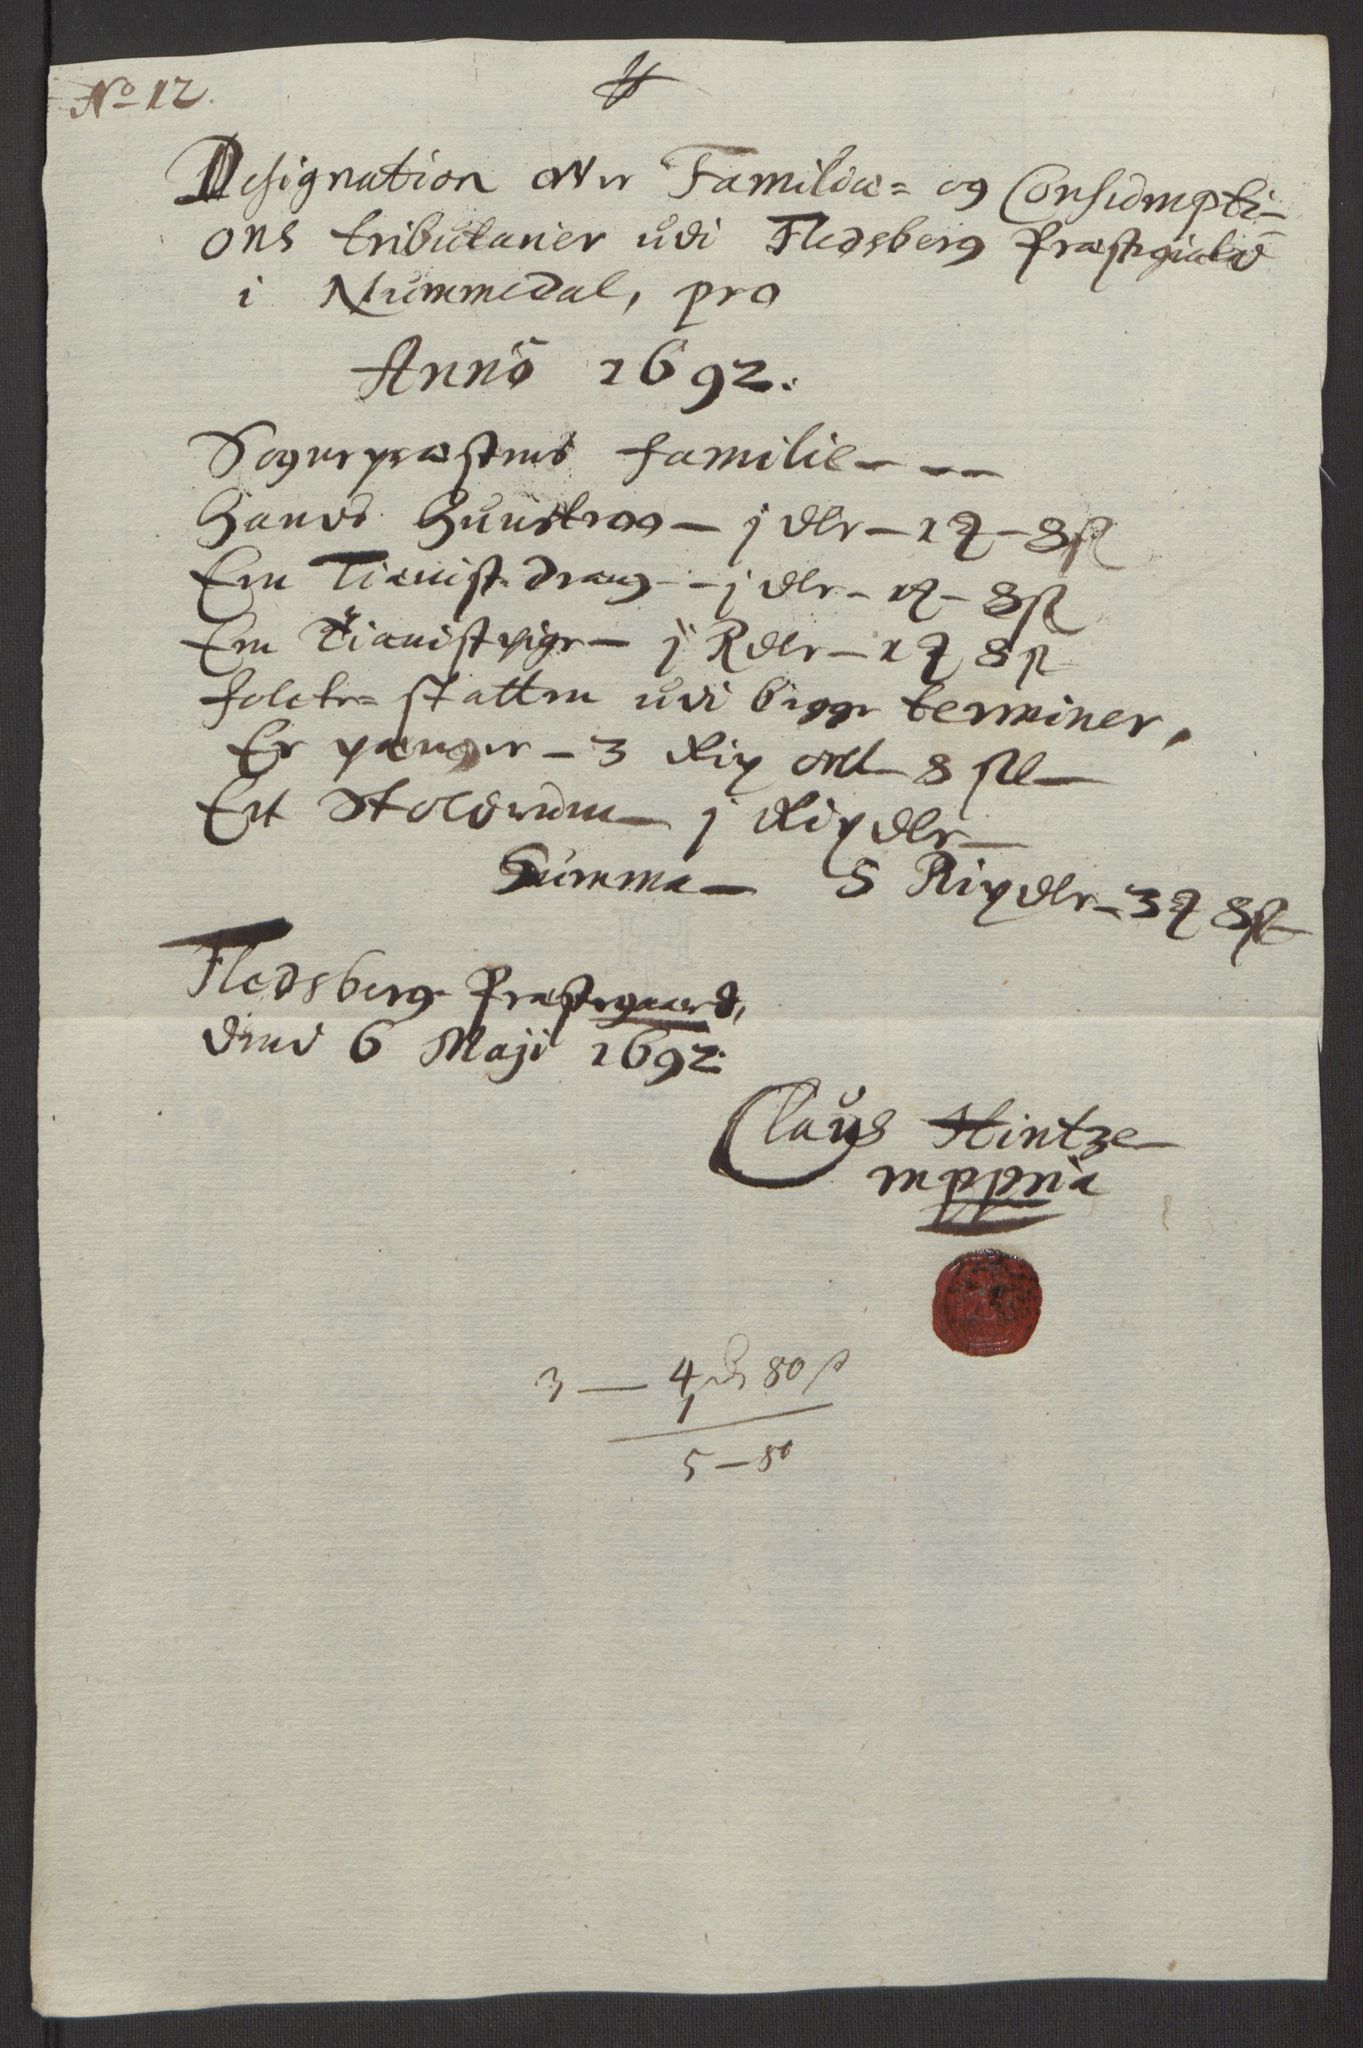 No 12.
Designation over Familiæ= og Consumpti-
ons tributarier udi Fledsberg Præstegield
i Nummedal, pro
Anno 1692.
Sogneprestens familie
Hands Huustroe j dlr 1 8
Een Tienist dreng j dlr 1 8
Een Tienistpige j Rdlr 1 8
folcke= skatten udi begge terminer,
Er penger 3 Rix ort 8
Ett Stolerum j Rixdlr
Summa 5 Rixdlr 3 8
Fledsberg Præstegaard,
dend 6 Maji 1692
Claus Hintze
mppria
3 4 80
1
5 - 80